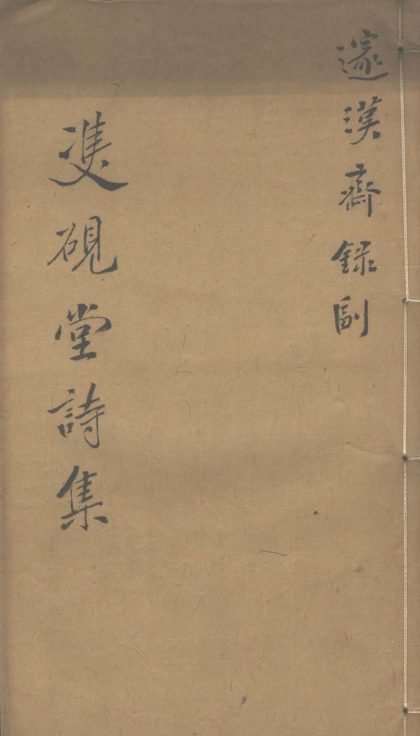 邃漢齋錄副
雙硯堂詩集